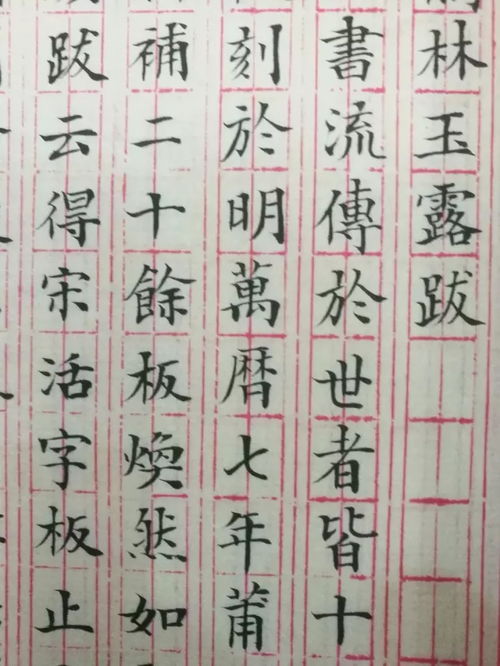 林玉露跋
書流傳於世者皆十
刻於明萬曆七年莆
補二十餘板煥然如
跋云得宋活字板止